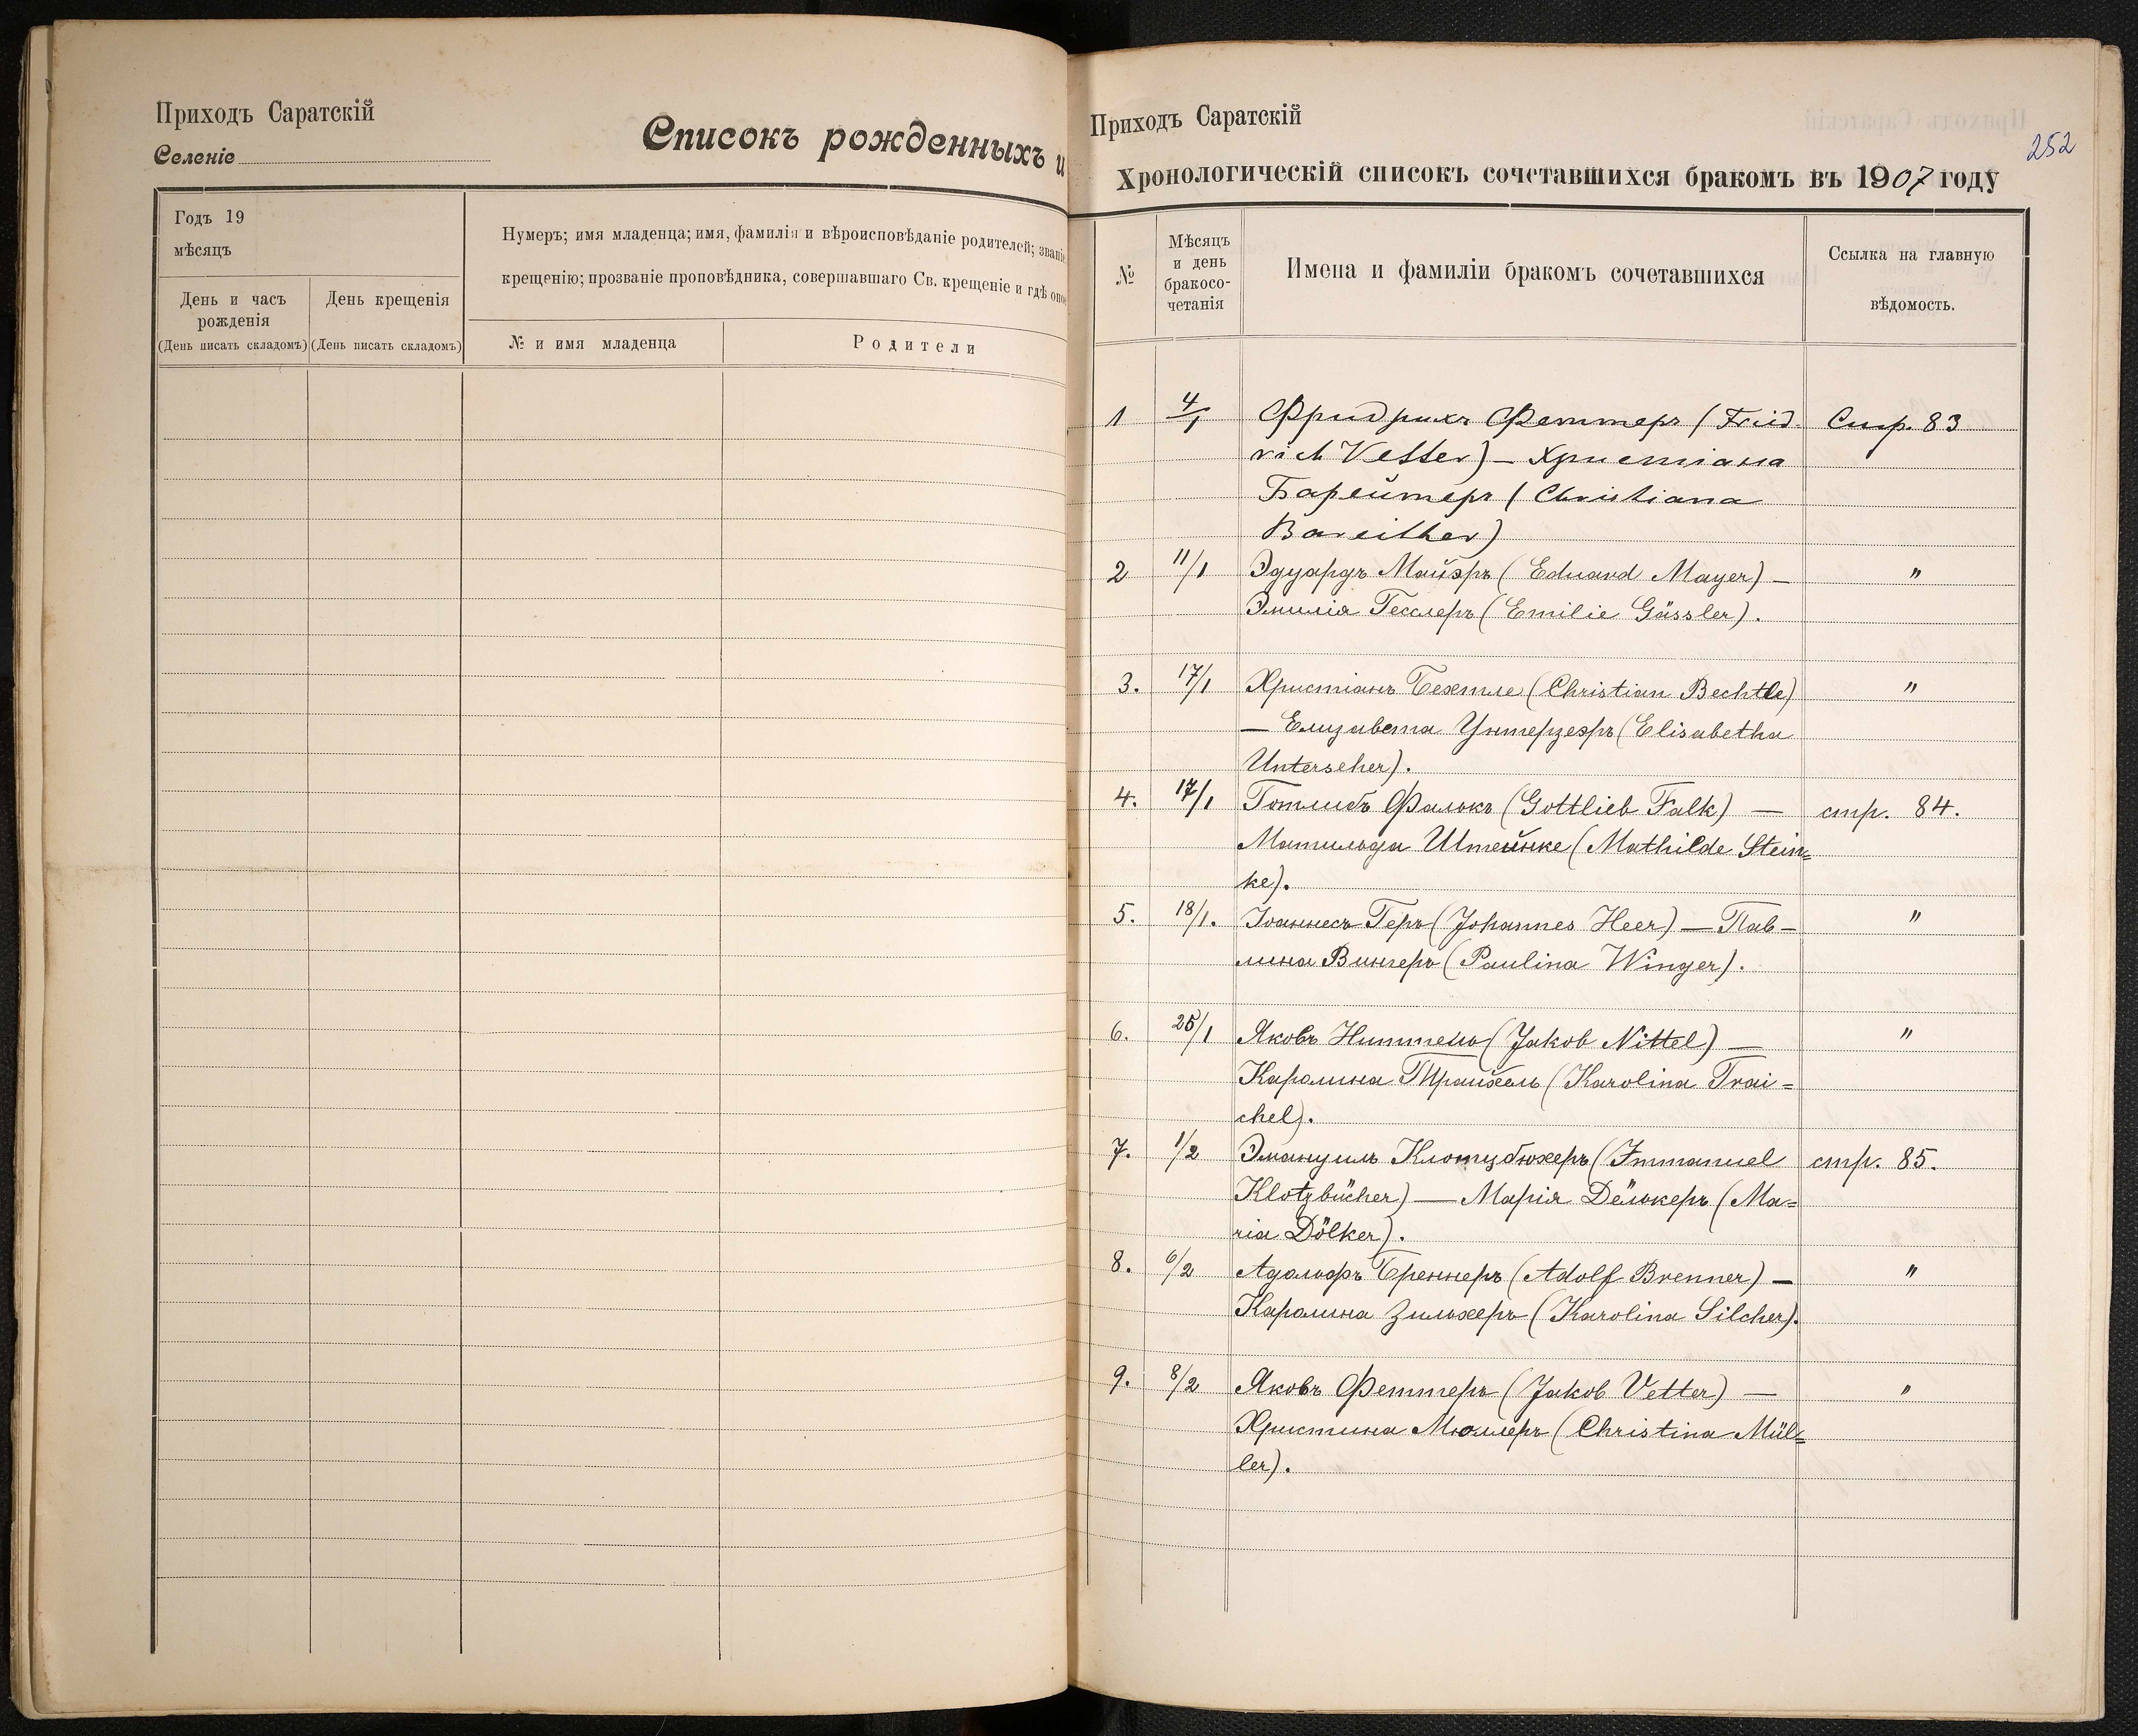 Приходъ Саратскій
Селеніе
Списокъ рожденныхъ и
Годъ 19
мѣсяцъ
Нумеръ; имя младенца; имя, фамилія и вѣроисповѣданіе родителей; званіе
крещенію; прозваніе проповѣдника, совершавшаго Св. крещеніе и гдѣ оно
День и часъ рожденія
День крещенія
(День писать складомъ) (День писать складомъ)
№ и имя младенца
Родители
Приходъ Саратскій
252
Хронологическій списокъ сочетавшихся бракомъ въ 1907 году
№
Мѣсяцъ
и день
бракосо-
четанія
Имена и фамиліи бракомъ сочетавшихся
Ссылка на главную
вѣдомость.
1 4/1 Фридрихъ Феттеръ (Fried- Стр. 83
rich Vetter) — Христіана
Барейтеръ (Christiana
Bareither)
2 11/1 Эдуардъ Майэръ (Eduard Mayer) — "
Эмилія Гесслеръ (Emilie Gässler).
3. 17/1 Христіанъ Бехтле (Christian Bechtle) "
— Елизавета Унтерзееръ (Elisabetha
Unterseher).
4. 17/1 Готлибъ Фалькъ (Gottlieb Falk) — стр. 84.
Матильда Штейнке (Mathilde Stein=
ke).
5. 18/1. Іоаннесъ Геръ (Johannes Heer) — Пав- "
лина Вингеръ (Paulina Winger).
6. 25/1 Яковъ Ниттель (Jakob Nittel) — "
Каролина Трайхель (Karolina Trai=
chel).
7. 1/2 Эмануилъ Клотцбюхеръ (Immanuel стр. 85.
Klotzbücher) — Марія Дёлькеръ (Ma=
ria Dölker).
8. 6/2 Адольфъ Бреннеръ (Adolf Brenner) — "
Каролина Зильхеръ (Karolina Silcher).
9. 8/2 Яковъ Феттеръ (Jakob Vetter) — "
Христина Мюллеръ (Christina Mül=
ler).